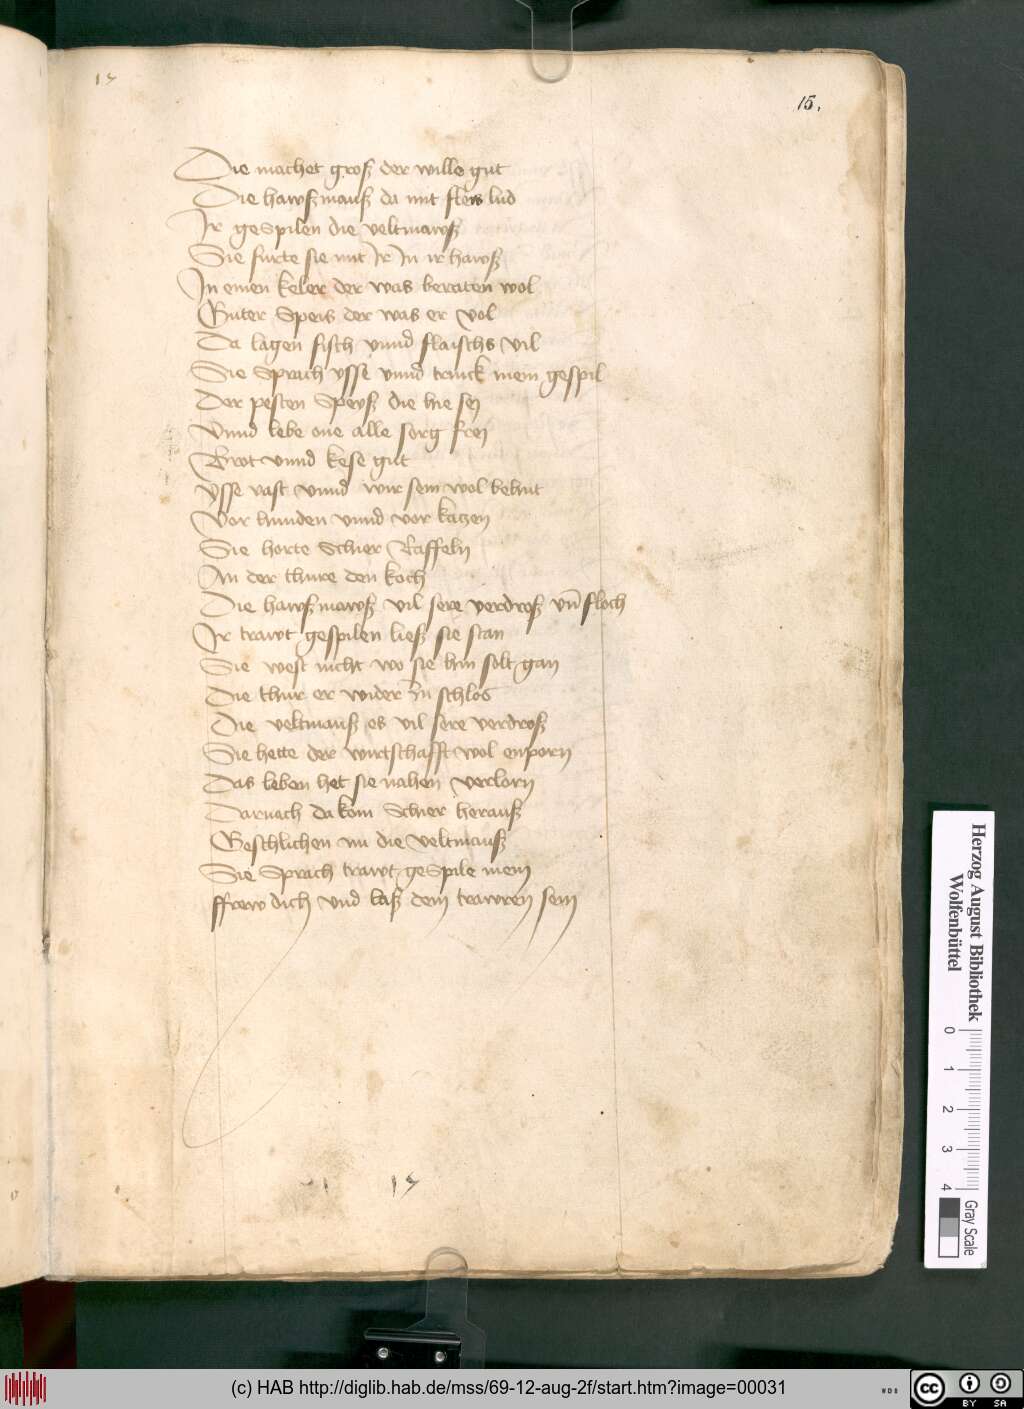 15
15.
Die machet groß der wille gut
Die hawßmauß da mit fleis lud
Ir geSpilen die veltmawß
Sie furte sie mit Ir In ir hawß
In einen keler der was beraten wol
Guter Speis der was er vol
Da lagen fisch vnnd flaischs vil
Sie Sprach ysse vnnd trinck mein gespil
Der pesten Speyß die hie sey
Vnnd lebe one alle sorg frey
Brot vnnd kese gut
Ysse vast vnnd wir sein wol behut
Vor hunden vnnd vor katzen
Sie horte Schier Raffeln
An der thure den koch
Die hawßmawß vil sere verdroß vn̄ floch
Ir trawt gespilen ließ sie stan
Sie west nicht wo sie hin solt gan
Die thur er wider In schlos
Die veltmauß es vil sere verdroß
Sie hette der wirtschafft wol enporn
Das leben het sie nahen verlorn
Darnach da kom Schier herauß
Geschlichen nu die veltmauß
Sie Sprach trawt geSpile mein
ffrew dich vnd laß dein trawren sein
15
Herzog August Bibliothek
Wolfenbüttel
0 1 2 3 4
Gray Scale
(c) HAB http://diglib.hab.de/mss/69-12-aug-2f/start.htm?image=00031
WDB
cc
BY SA